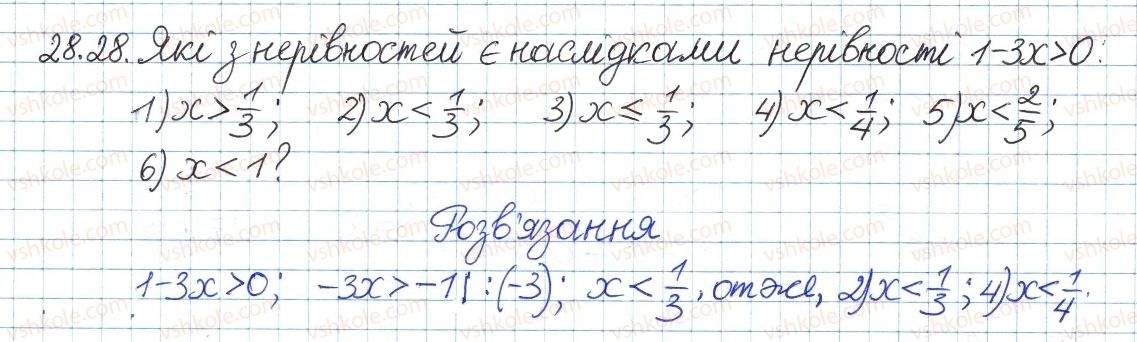 28.28. Які з нерівностей є наслідками нерівності 1-3x>0:
1) x > 1/3; 2) x < 1/3; 3) x ≤ 1/3; 4) x < 1/4; 5) x < 2/5;
6) x < 1?
Розв'язання
1-3x>0; -3x>-1 | :(-3); x < 1/3, отже, 2) x < 1/3; 4) x < 1/4.